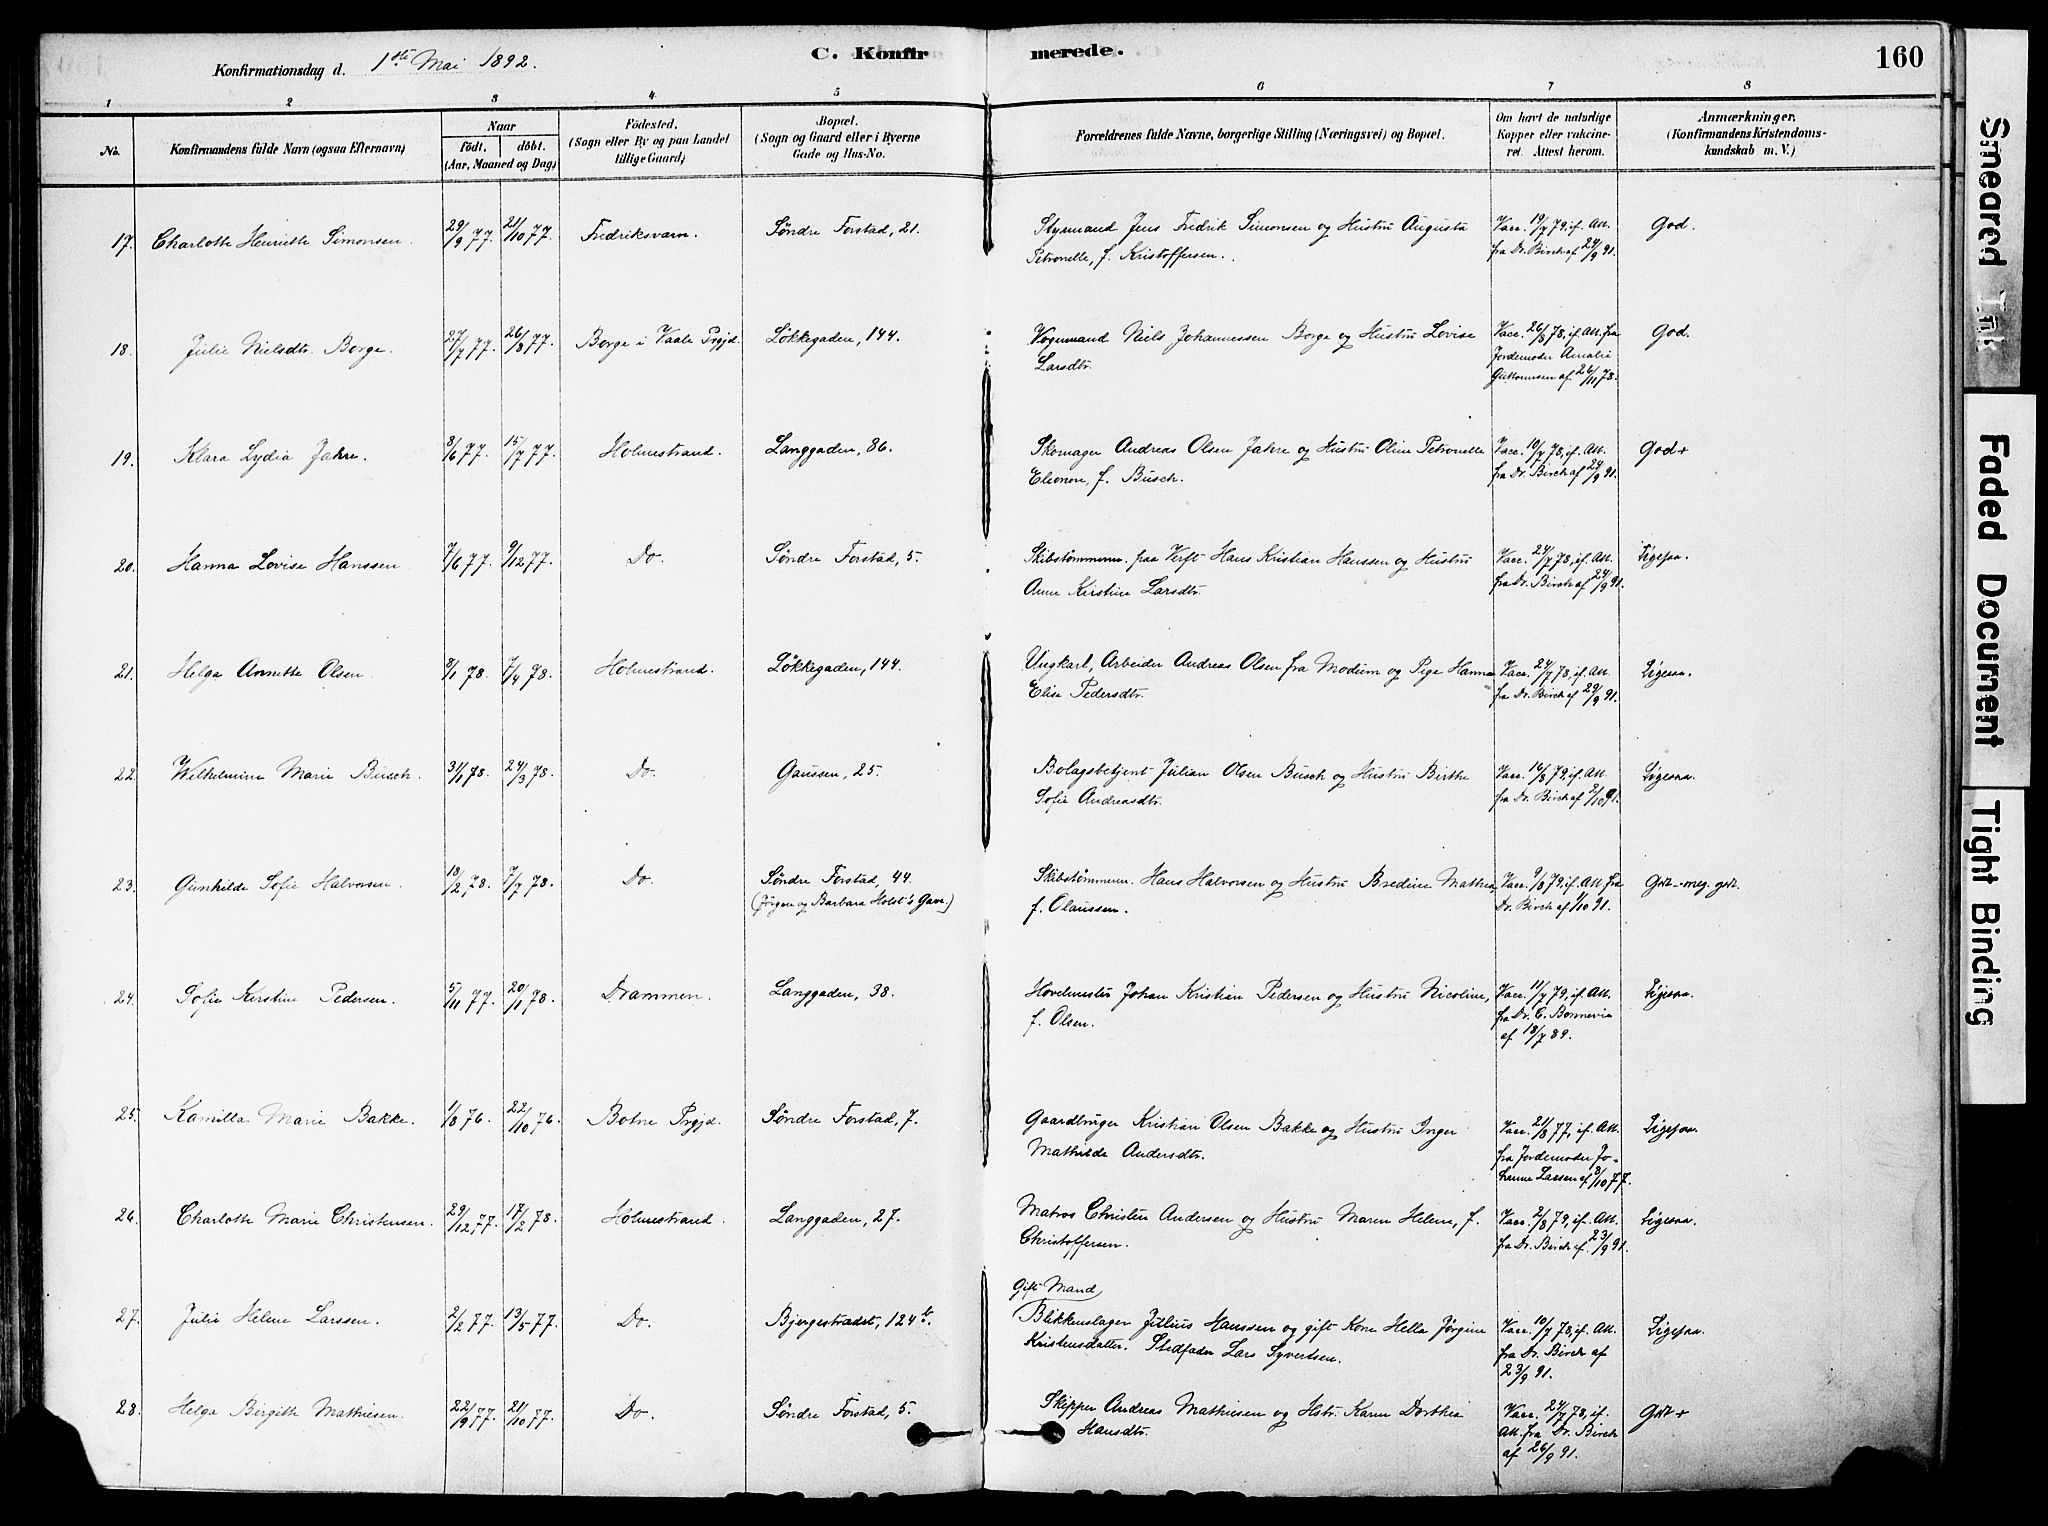 Konfirmationsdag d. 1ste Mai 1892.
C. Konfir merede. 160
1 2 3 4 5 6 7 8
No.
Konfirmandens fulde Navn (ogsaa Efternavn)
Naar
født. døbt.
(Aar, Maaned og Dag)
Fødested.
(Sogn eller By og paa Landet
tillige Gaard)
Bopæl.
(Sogn og Gaard eller i Byerne
Gade og Hus-No.
Forældrenes fulde Navne, borgerlige Stilling (Næringsvei) og Bopæl.
Om havt de naturlige
Kopper eller vakcine-
ret. Attest herom.
Anmærkninger.
(Konfirmandens Kristendoms-
kundskab m. V.)
17. Charlotte Henriette Simonsen. 29/9 77. 21/10 77. Fredriksværn. Søndre Forstad, 21. Styrmand Jens Fredrik Simonsen og Hustru Augusta Vacc. 19/7 79, if. Att. God.
Petronelle, f. Kristoffersen. fra Dr. Birch af 24/9 91.
18. Julie Nielsdtr. Borge. 27/7 77. 26/8 77. Borge i Vaale Prgjd. Løkkegaden, 144. Vognmand Niels Johannessen Borge og Hustru Lovise Vacc. 26/8 78, if. Att. fra God.
Larsdtr. Jordemoder Amalie
Guttormsen af 26/11 78.
19. Klara Lydia Jahre. 8/6 77. 15/7 77. Holmestrand. Langgaden, 86. Skomager Andreas Olsen Jahre og Hustru Oline Petronelle Vacc. 10/7 78, if. Att. God+
Eleonore, f. Busch. fra Dr. Birch af 24/9 91.
20. Hanna Lovise Hanssen 7/6 77. 9/12 77. Do. Søndre Forstad, 5. Skibstømmerm. paa Verft Hans Kristian Hanssen og Hustru Vacc. 24/7 78, if. Att. Ligesaa.
Anne Kirstine Larsdtr. fra Dr. Birch af 24/9 91.
21. Helga Annette Olsen. 8/1 78. 7/4 78. Holmestrand. Løkkegaden, 144. Ungkarl, Arbeider Andreas Olsen fra Modum og Pige Hanna Vacc. 24/7 78, if. Att. Ligesaa.
Elise Pedersdtr. fra Dr. Birch af 29/9 91.
22. Wilhelmine Marie Busch. 3/1 78. 24/3 78. Do. Gaussen, 25. Bolagsbetjent Julian Olsen Busch og Hustru Birthe Vacc. 16/8 79, if. Att. Ligesaa.
Sofie Andreasdtr. fra Dr. Birch af 2/10 91.
23. Gunhilde Sofie Halvorsen. 18/2 78. 7/7 78. Do. Søndre Forstad, 44. Skibstømmerm. Hans Halvorsen og Hustru Bredine Mathea Vacc. 9/8 79, if. Att. fra Gdt.-meg. gdt.
(Jørgen og Barbara Holst's Gave.) f. Olaussen. Dr. Birch af 1/10 91.
24. Sofie Kirstine Pedersen. 5/11 77. 20/1 78. Drammen. Langgaden, 38. Hovelmester Johan Kristian Pedersen og Hustru Nicoline, Vacc. 11/7 79, if. Att. Ligesaa.
f. Olsen. fra Dr. C. Bonnevie
af 18/7 89.
25. Kamilla Marie Bakke. 1/8 76. 22/10 76. Botne Prgjd. Søndre Forstad, 7. Gaardbruger Kristian Olsen Bakke og Hustru Inger Vacc. 21/8 77, if. Att. Ligesaa.
Mathilde Andersdtr. fra Jordemoder Jo-
hanne Lassen af 8/10 77.
26. Charlotte Marie Christensen. 29/12 77. 17/2 78. Holmestrand. Langgaden, 27. Matros Christen Andersen og Hustru Maren Helene, f. Vacc. 2/8 79, if. Att. Ligesaa.
Christoffersen. fra Dr. Birch af 23/9 91.
Gift Mand
27. Julie Helene Larssen. 2/2 77. 13/5 77. Do. Bjergestrædet, 124b. Blikkenslager Julius Hanssen og gift Kone Hella Jørgine Vacc. 10/7 78, if. Att. Ligesaa.
Kristensdatter. Stedfader Lars Syvertsen. fra Dr. Birch af
23/9 91.
28. Helga Birgitte Mathiesen. 22/9 77. 21/10 77. Do. Søndre Forstad, 5. Skipper Andreas Mathiesen og Hstr. Karen Dorthea Vacc. 24/7 78, if. Gdt+
Hansdtr. Att. fra Dr. Birch
af 26/9 91.
Smeared Ink
Faded Document
Tight Binding